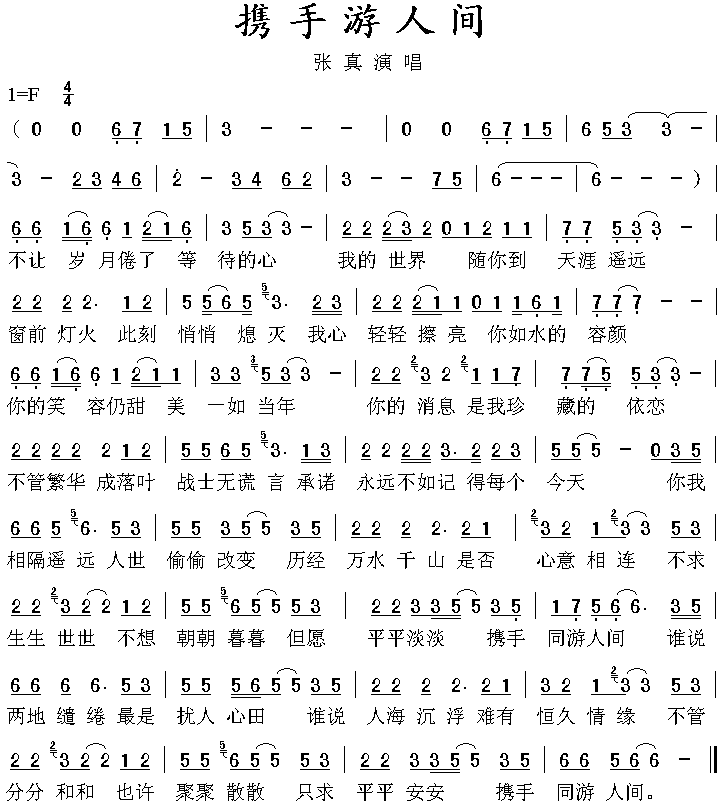 携手游人间
张真演唱
1=F 4/4
( 0 0 6 7 1 5 | 3 - - - | 0 0 6 7 1 5 | 6 5 3 3 - |
3 - 2 3 4 6 | 2 - 3 4 6 2 | 3 - - 7 5 | 6 - - - | 6 - - - ) |
6 6 1 6 6 1 2 1 6 | 3 5 3 3 - | 2 2 2 3 2 0 1 2 1 1 | 7 7 5 3 3 - |
不让 岁 月倦了 等 待的心 我的 世界 随你到 天涯 遥远
2 2 2 2. 1 2 | 5 5 5 6 5 5 3. 2 3 | 2 2 2 1 1 0 1 1 6 1 | 7 7 7 - - |
窗前 灯火 此刻 悄悄 熄 灭 我心 轻轻 擦 亮 你如水的 容颜
6 6 1 6 6 1 2 1 1 | 3 3 3 5 3 3 - | 2 2 2 3 2 2 1 1 7 | 7 7 5 3 3 - |
你的笑 容仍甜 美 一如 当年 你的 消息 是我珍 藏的 依恋
2 2 2 2 2 1 2 | 5 5 6 5 5 3. 1 3 | 2 2 2 2 3. 2 3 | 5 5 5 - 0 3 5 |
不管繁华 成落叶 战士无谎 言 承诺 永远不如记 得每个 今天 你我
6 6 5 5 6. 5 3 | 5 5 3 5 5 3 5 | 2 2 2 2. 2 1 | 2 3 2 1 2 3 3 5 3 |
相隔遥 远 人世 偷偷 改变 历经 万水 千 山 是否 心意 相 连 不求
2 2 2 3 2 2 1 2 | 5 5 5 6 5 5 5 3 | 2 2 3 3 5 5 3 5 | 1 7 5 6 6. 3 5 |
生生 世世 不想 朝朝 暮暮 但愿 平平淡淡 携手 同游人间 谁说
6 6 6 6. 5 3 | 5 5 5 6 5 5 3 5 | 2 2 2 2. 2 1 | 3 2 1 2 3 3 5 3 |
两地 缱 绻 最是 扰人 心田 谁说 人海 沉 浮 难有 恒久 情 缘 不管
2 2 2 3 2 2 1 2 | 5 5 5 6 5 5 5 3 | 2 2 3 3 5 5 3 5 | 6 6 5 6 6 - ‖
分分 和和 也许 聚聚 散散 只求 平平 安安 携手 同游 人间。